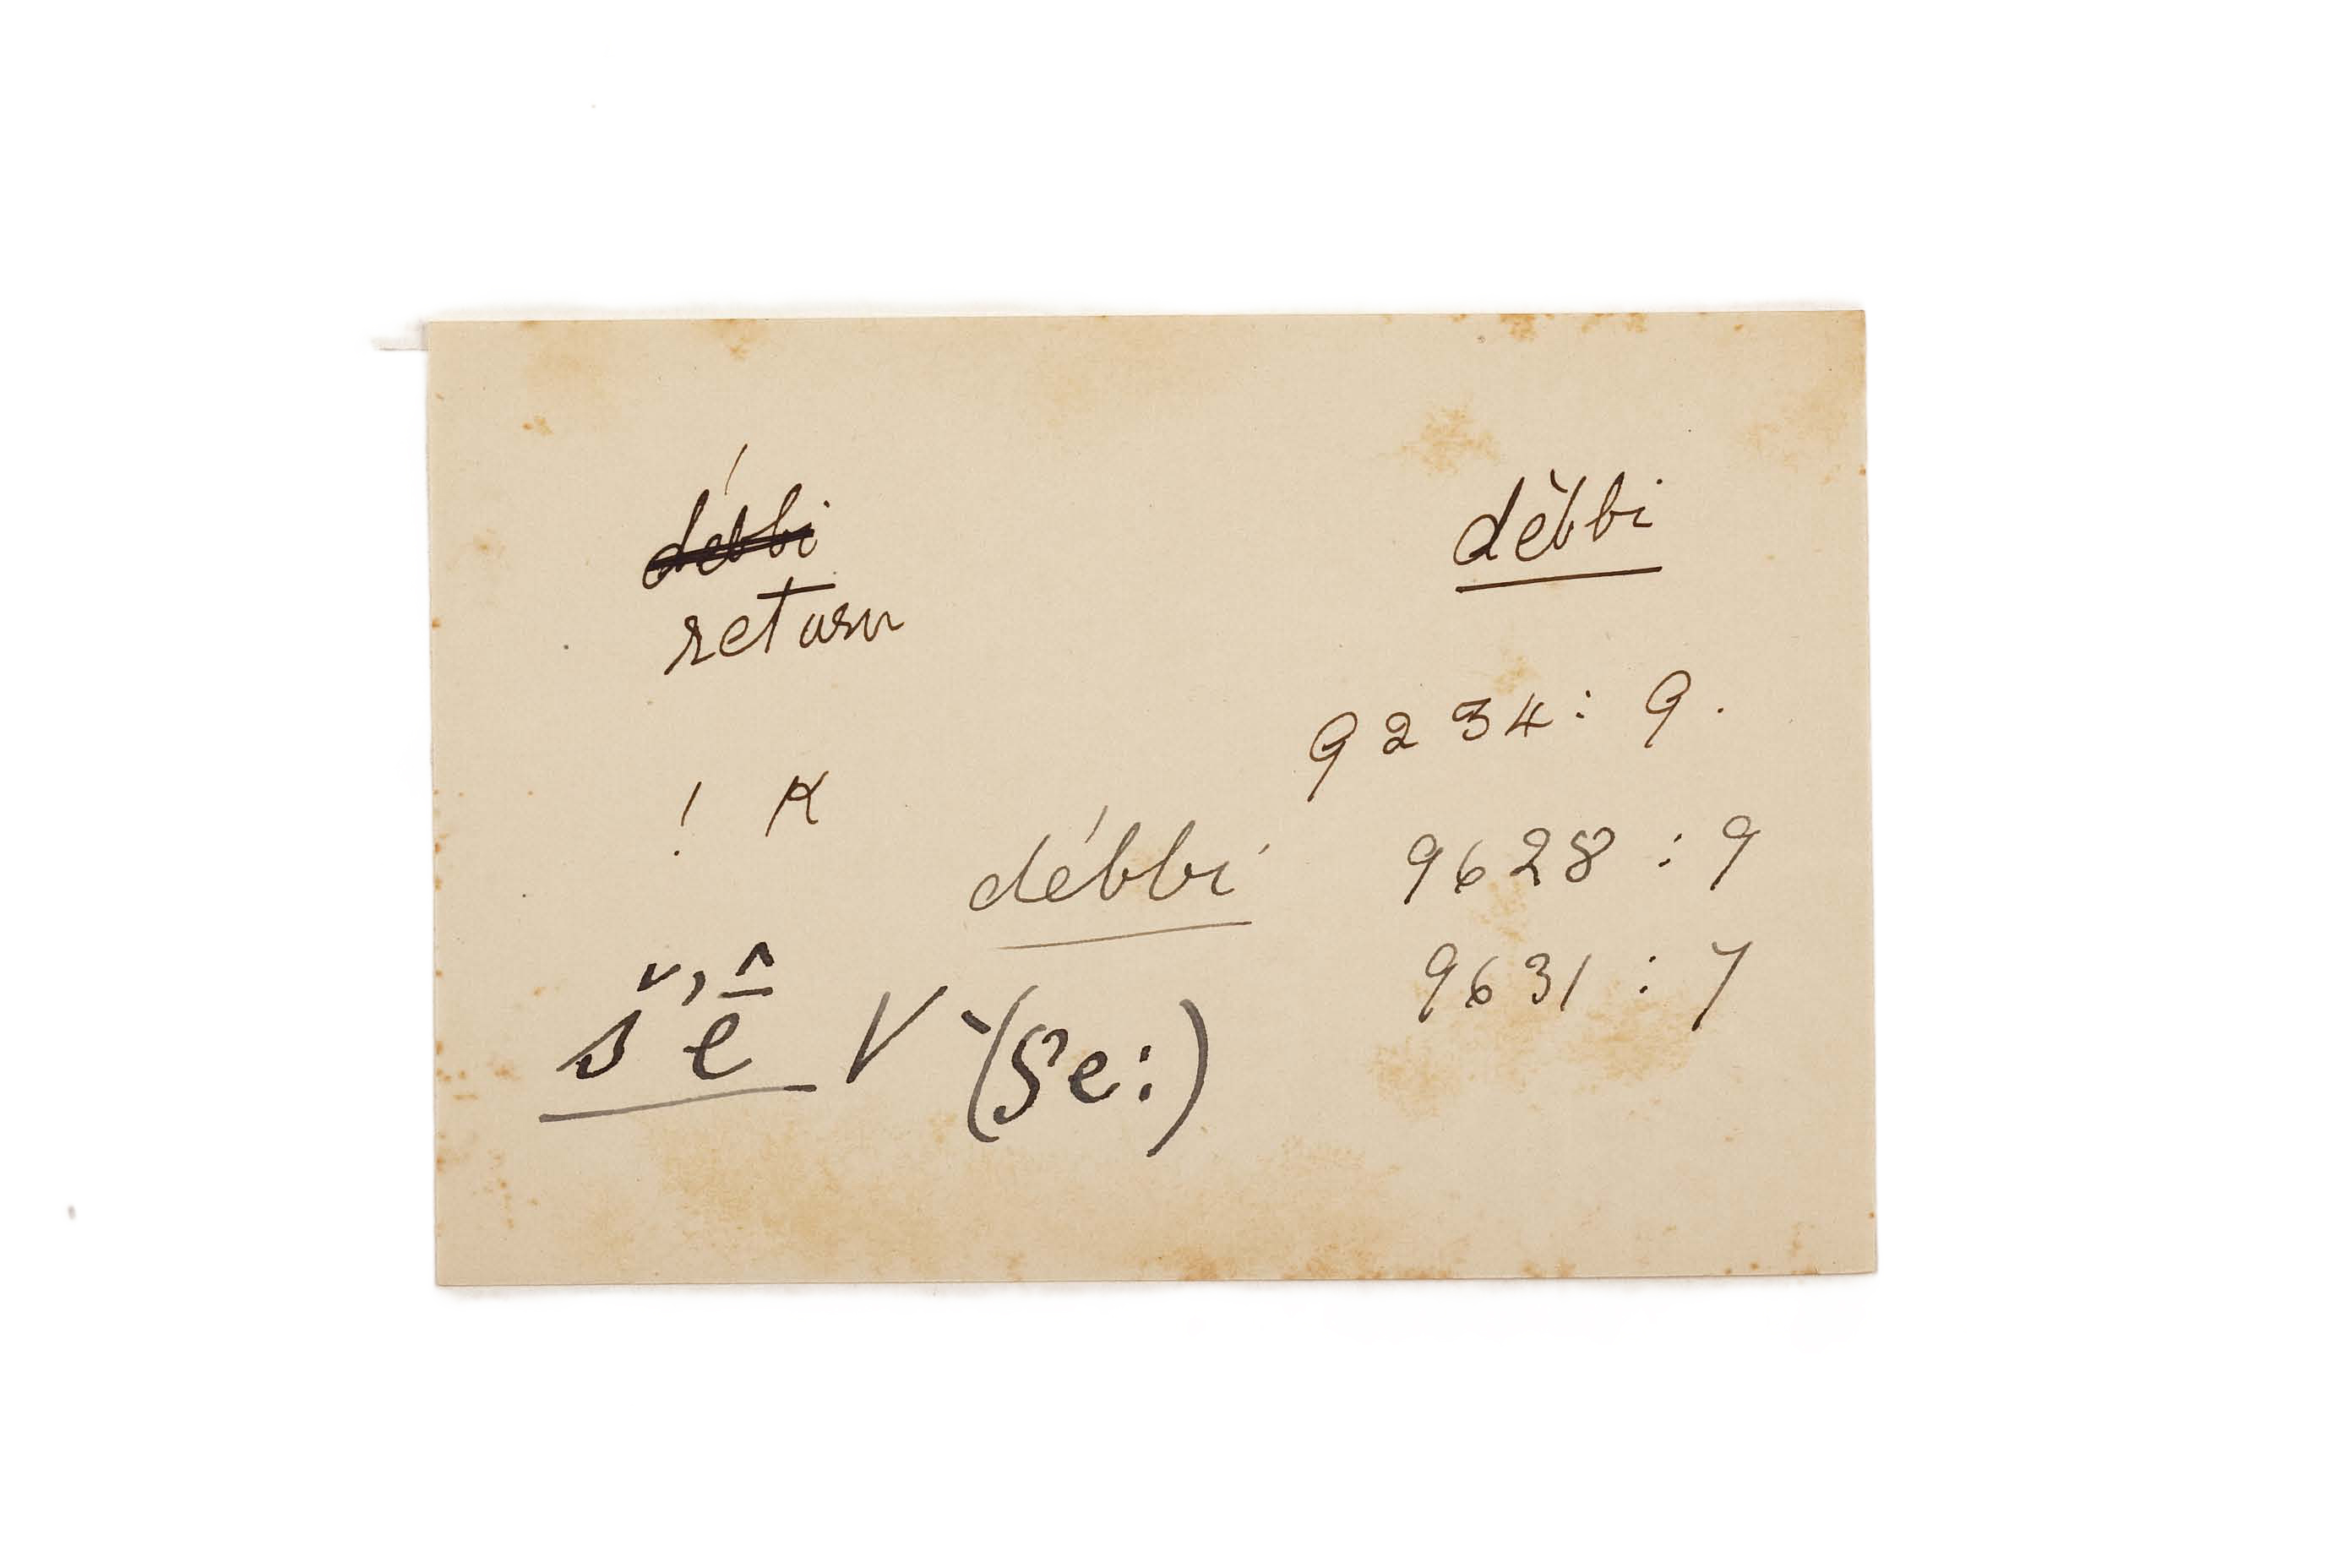 débbi
return
dèbbi
9234: 9.
! K
débbi 9628 : 9
9631 : 7